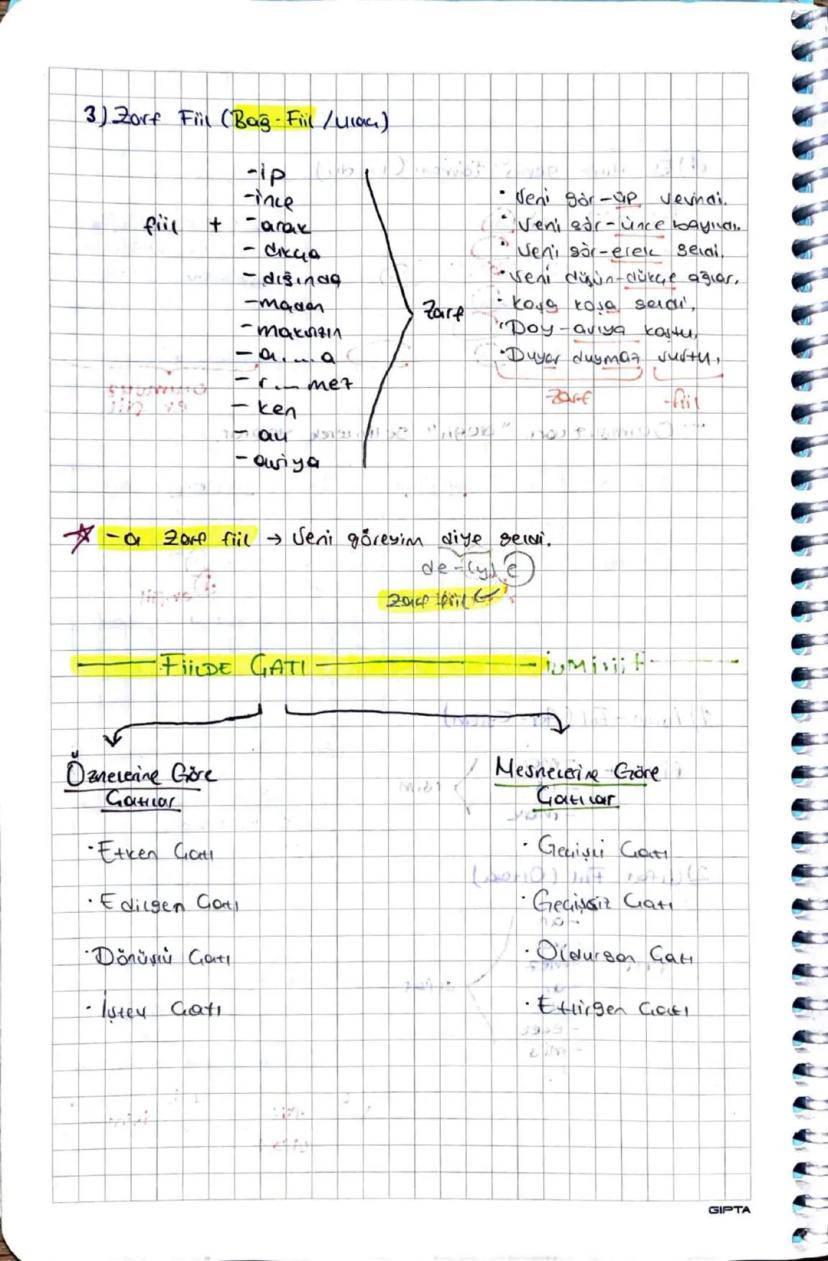 3) Zarf Fiil (Bağ-Fiil /Ulaç)
fiil +
-ip
-ince
-arak
-dıkça
-dığında
-madan
-maksızın
-a....a
-r....mez
-ken
-alı
-asıya
Zarf
• Seni gör-üp sevindi.
• Seni gör-ünce bayıldı.
• Seni gör-erek geldi.
• Seni düşün-dükçe ağlar.
• Koşa koşa geldi.
• Doy-asıya koştu.
• Duyar duymaz sustu.
Zarf fiil
-a zarf fiil → Seni göreyim diye geldi.
de-(y)e
Zarf fiil
FİİLDE ÇATI
Öznelerine Göre
Çatılar
• Etken Çatı
• Edilgen Çatı
• Dönüşlü Çatı
• İşteş Çatı
Nesnelerine Göre
Çatılar
• Geçişli Çatı
• Geçişsiz Çatı
• Oldurgan Çatı
• Ettirgen Çatı
GIPTA